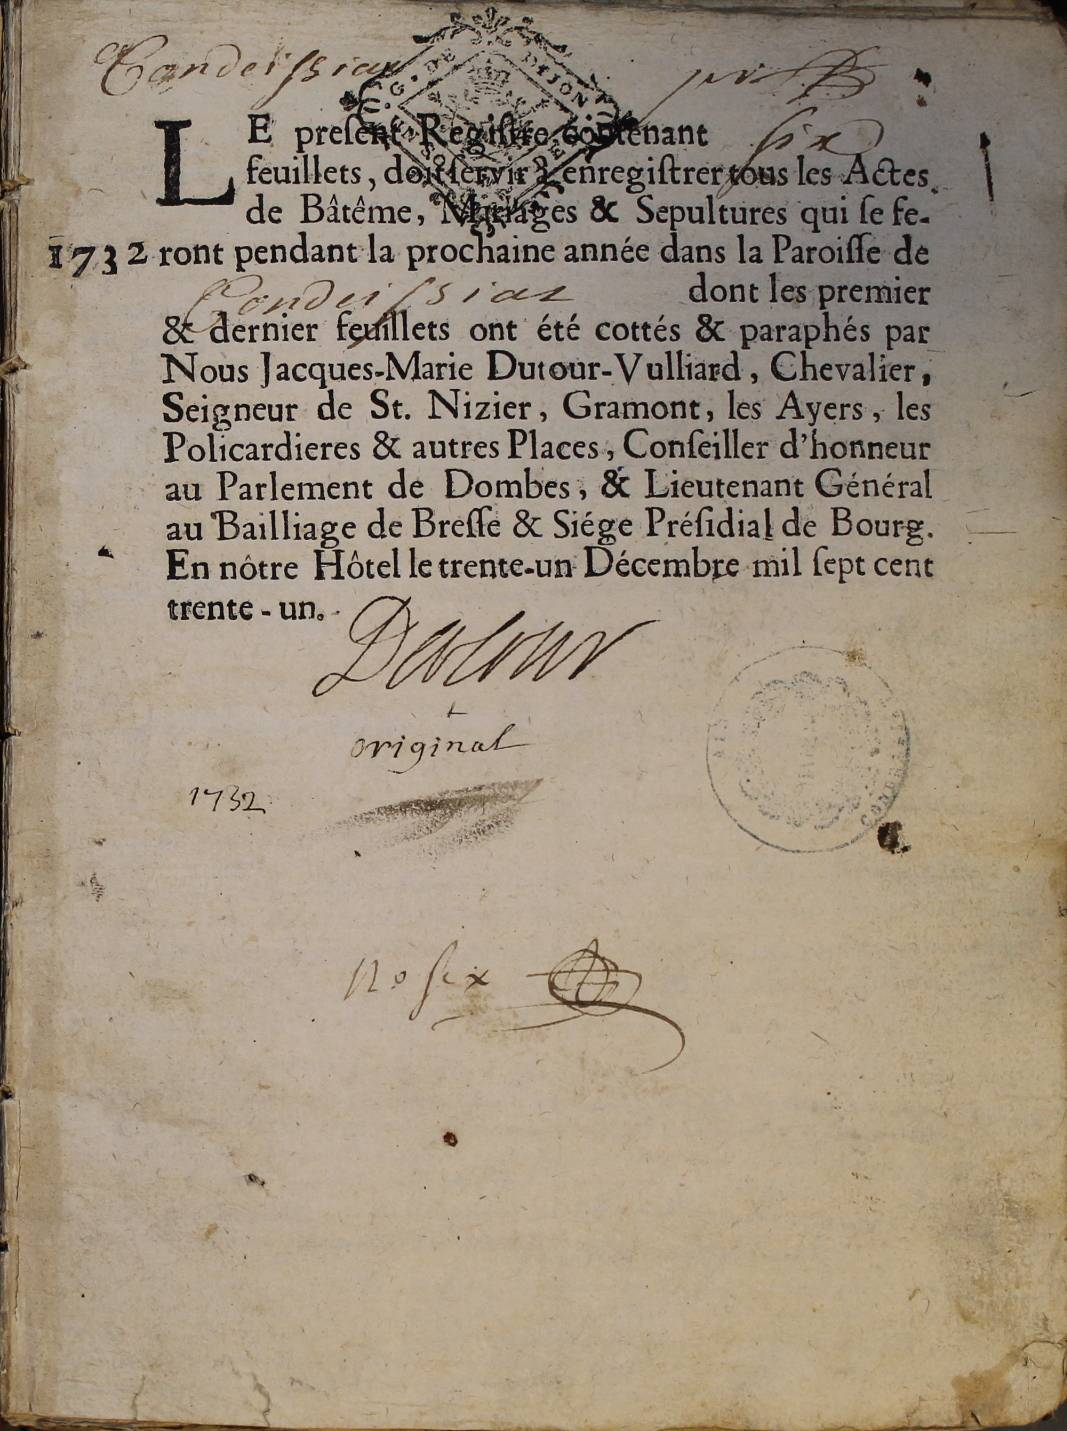 Condeissiat
LE preſent Regiſtre contenant six
feuillets, doit ſervir à enregiſtrer tous les Actes
de Bâtême, Mariages & Sepultures qui ſe fe-
1732 ront pendant la prochaine année dans la Paroiſſe de
Condeissiat dont les premier
& dernier feuillets ont été cottés & paraphés par
Nous Jacques-Marie Dutour-Vulliard, Chevalier,
Seigneur de St. Nizier, Gramont, les Ayers, les
Policardieres & autres Places, Conſeiller d'honneur
au Parlement de Dombes, & Lieutenant Général
au Bailliage de Breſſe & Siége Préſidial de Bourg.
En nôtre Hôtel le trente-un Décembre mil ſept cent
trente-un.
Dutour
original
1732
no six